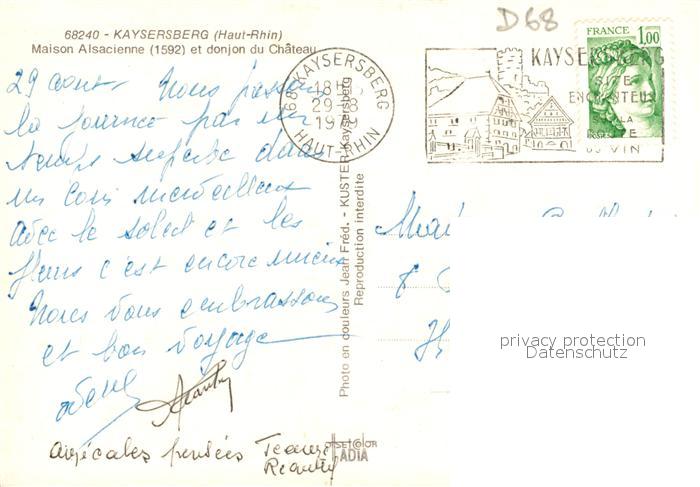 D68
68240 - KAYSERSBERG (Haut-Rhin)
Maison Alsacienne (1592) et donjon du Château
68 KAYSERSBERG
18H
29-8
19
HAUT-RHIN
KAYSERSBERG
SITE
ENCHANTEUR
LA
VIN
FRANCE
1,00
29 août Nous passons
la journée par un
temps superbe dans
un coin merveilleux
avec le soleil et les
fleurs c'est encore mieux
Nous vous embrassons
et bon voyage
amicales pensées
Photo en couleurs Jean Fréd. - KUSTER Kaysersberg
Reproduction interdite
OFFSETCOLOR
IADIA
privacy protection
Datenschutz